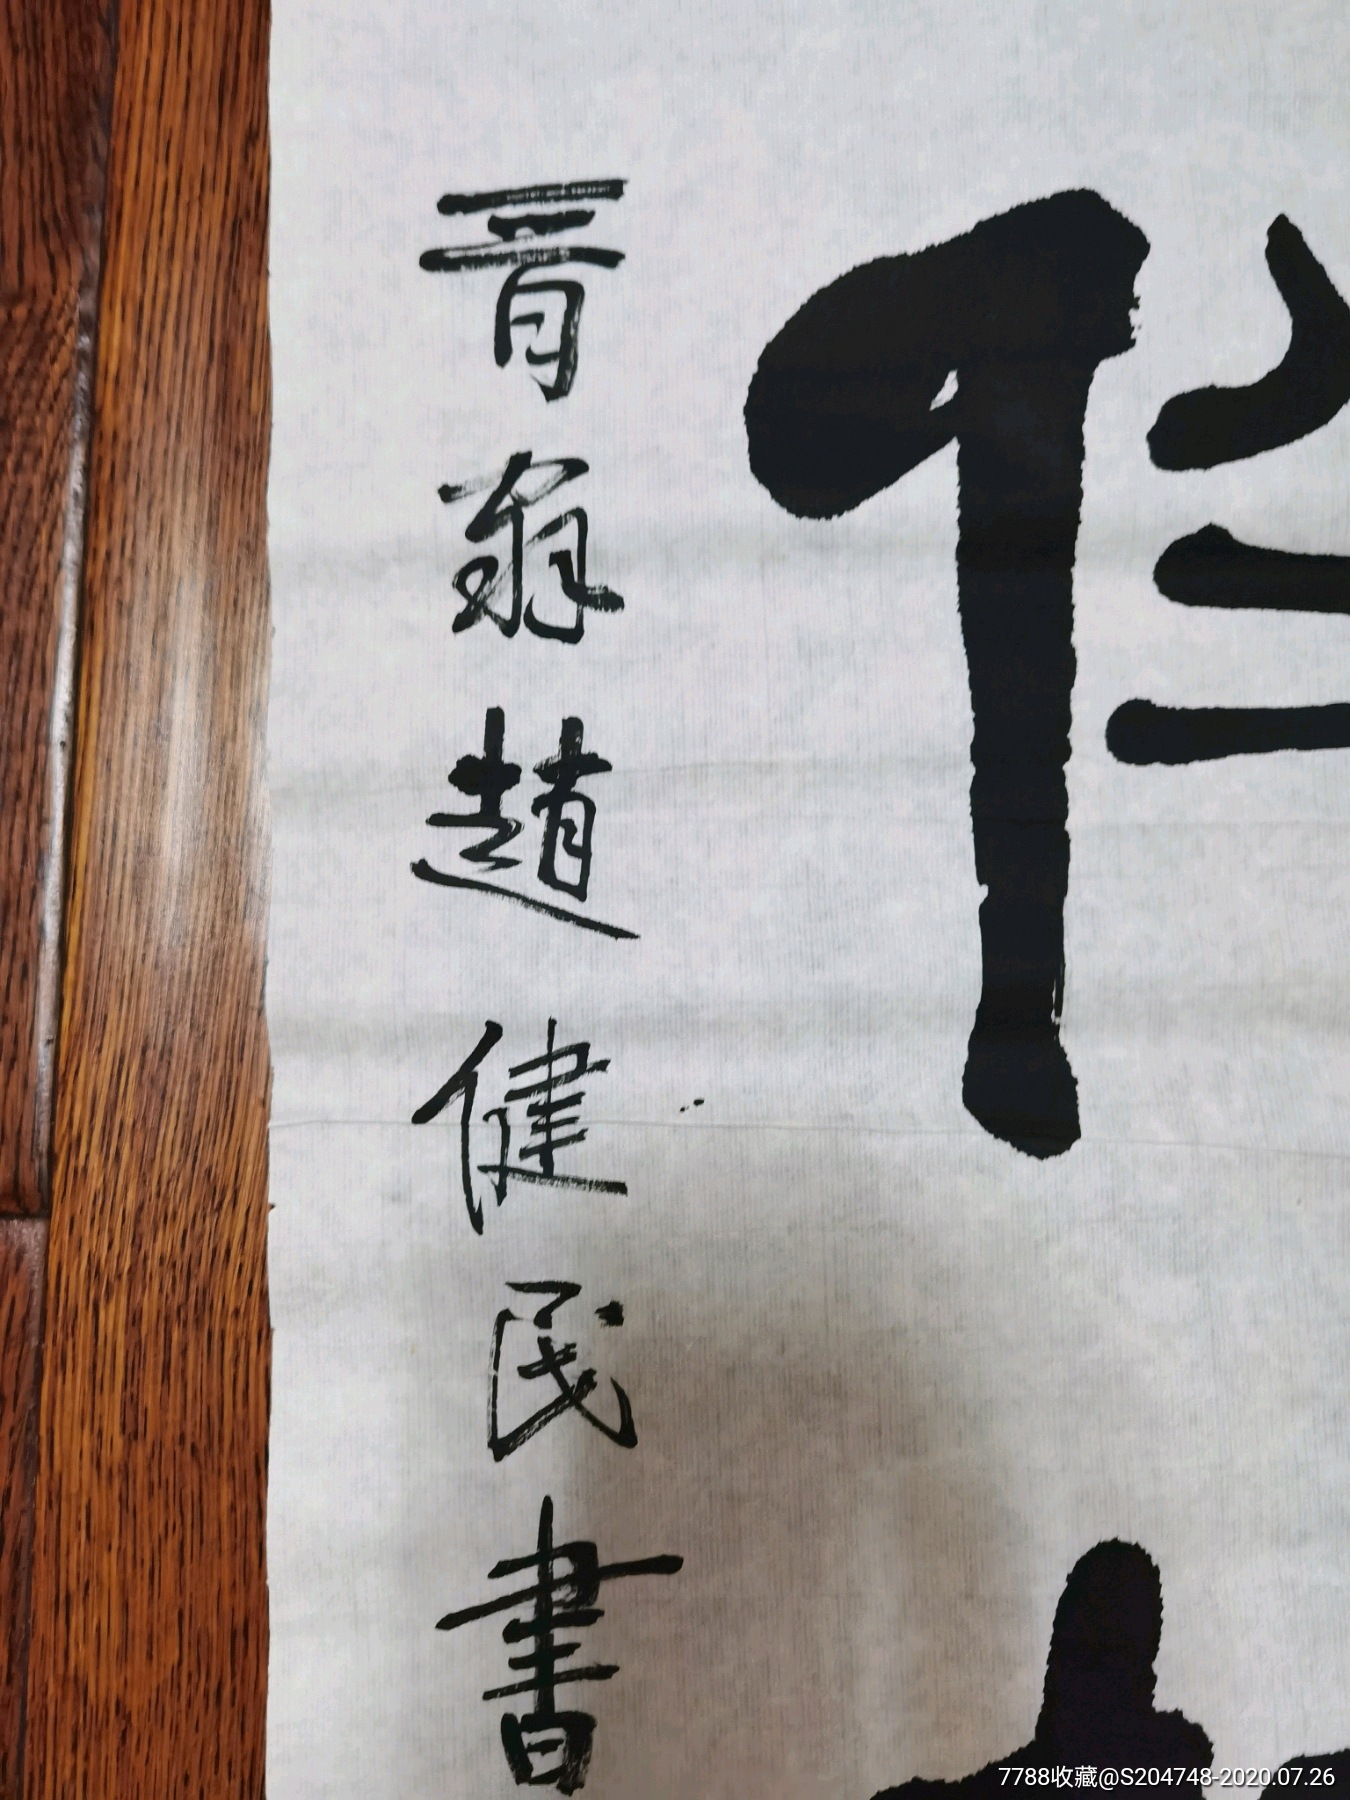 晋翁趙健民書
7788收藏@S204748-2020.07.26